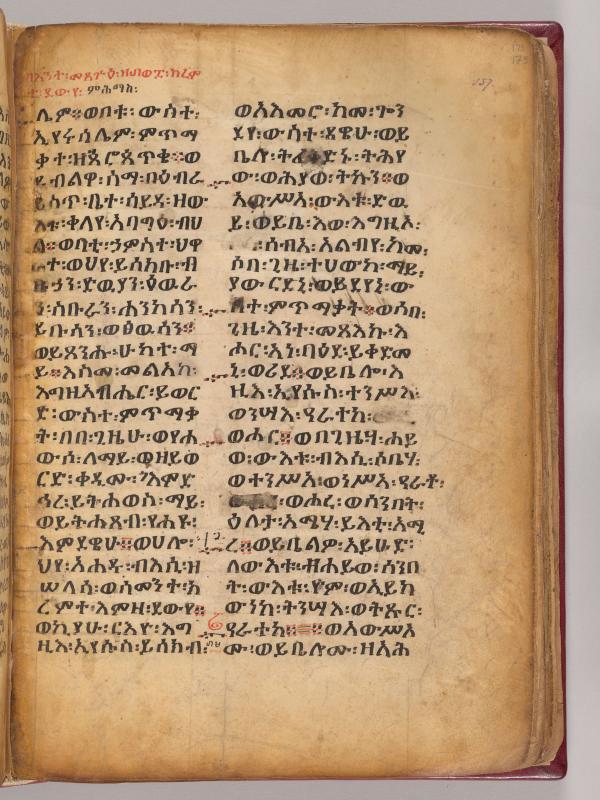 በእንተ፡መጻጕዕ፡ዘ፴ወ፰፡ክረም
ት፡ደውየ፡
ሌም፨ወቦቱ፡ውስተ፡
ኢየሩሳሌም፡ምጥማ
ቃት፡ዘጰሮጳጥቄ፨ወ
ይብልዋ፡ስማ፡በዕብራ
ይስጥ፡ቤተ፡ሳይዳ፡ዘው
እቱ፡ቀላየ፡አባግዕ፡ብሂ
ል፨ወባቲ፡ኃምስተ፡ህዋ
ወ፡ይሰክቡ፡ብ
ዙኃን፡ድዉያን፡ዕዉራ
ን፡ስቡራን፡ሐንካሳን፡
ይቡሳን፡ወፅዉሳን፨
ወይጸንሑ፡ሁከተ፡ማ
ይ፨እስመ፡መልአከ፡
እግዚአብሔር፡ይወር
ድ፡ውስተ፡ምጥማቃ
ት፡በበ፡ጊዜሁ፡ወየሐ
ውሶ፡ለማይ፡ወዘይወ
ርድ፡ቀዲሙ፡እምድ
ኅረ፡ይትሐወስ፡ማይ፡
ወይትሐጸብ፡የሐዩ፡
እምደዌሁ፨ወሀሎ፡
ህየ፡አሐዱ፡ብእሲ፡ዘ
ሠላሳ፡ወሰመንተ፡ክ
ረምት፡እምዘ፡ደወየ፨
ወኪያሁ፡ርእዮ፡እግ
ዚእ፡ኢየሱስ፡ይሰክብ፡
ወአእመሮ፡ከመ፡ጐን
ደየ፡ውስተ፡ደዌሁ፡ወይ
ቤሎ፡ትፈቅድኑ፡ትሕየ
ው፡ወሕያወ፡ትኩን፨ወ
አውሥአ፡ውእቱ፡ድዉ
ይ፡ወይቤ፡እወ፡እግዚኦ፡
ሰብእ፡አልብየ፡ከመ፡
ሶበ፡ጊዜ፡ተሀውከ፡ማይ፡
ያውርደኒ፡ወይደየኒ፡ው
ስተ፡ምጥማቃት፨ወሶበ፡
ጊዜ፡አንተ፡መጻእኩ፡እ
ሖር፡አነ፡በዕደ፡ይቀድመ
ኒ፡ወሪደ፨ወይቤሎ፡እ
ግዚእ፡ኢየሱስ፡ተንሥእ፡
ወንሣእ፡ዓራተከ፡
ወሖር፨ወበጊዜሃ፡ሐይ
ወ፡ውእቱ፡ብእሲ፡ሶቤሃ፡
ወተንሥአ፡ወነሥአ፡ዓራቶ፡
ወሖረ፡ወሰንበት፡
ዕለት፡አሜሃ፡ይእቲ፡አሚ
ረ፨ወይቤልዎ፡አይሁድ፡
ለውእቱ፡ዘሐይወ፡ሰንበ
ት፡ውእቱ፡ዮም፡ወኢይከ
ውነከ፡ትንሣእ፡ወትጹር፡
ዓራተከ፨፨ወአውሥአ
ሙ፡ወይቤሎሙ፡ዘአሕ